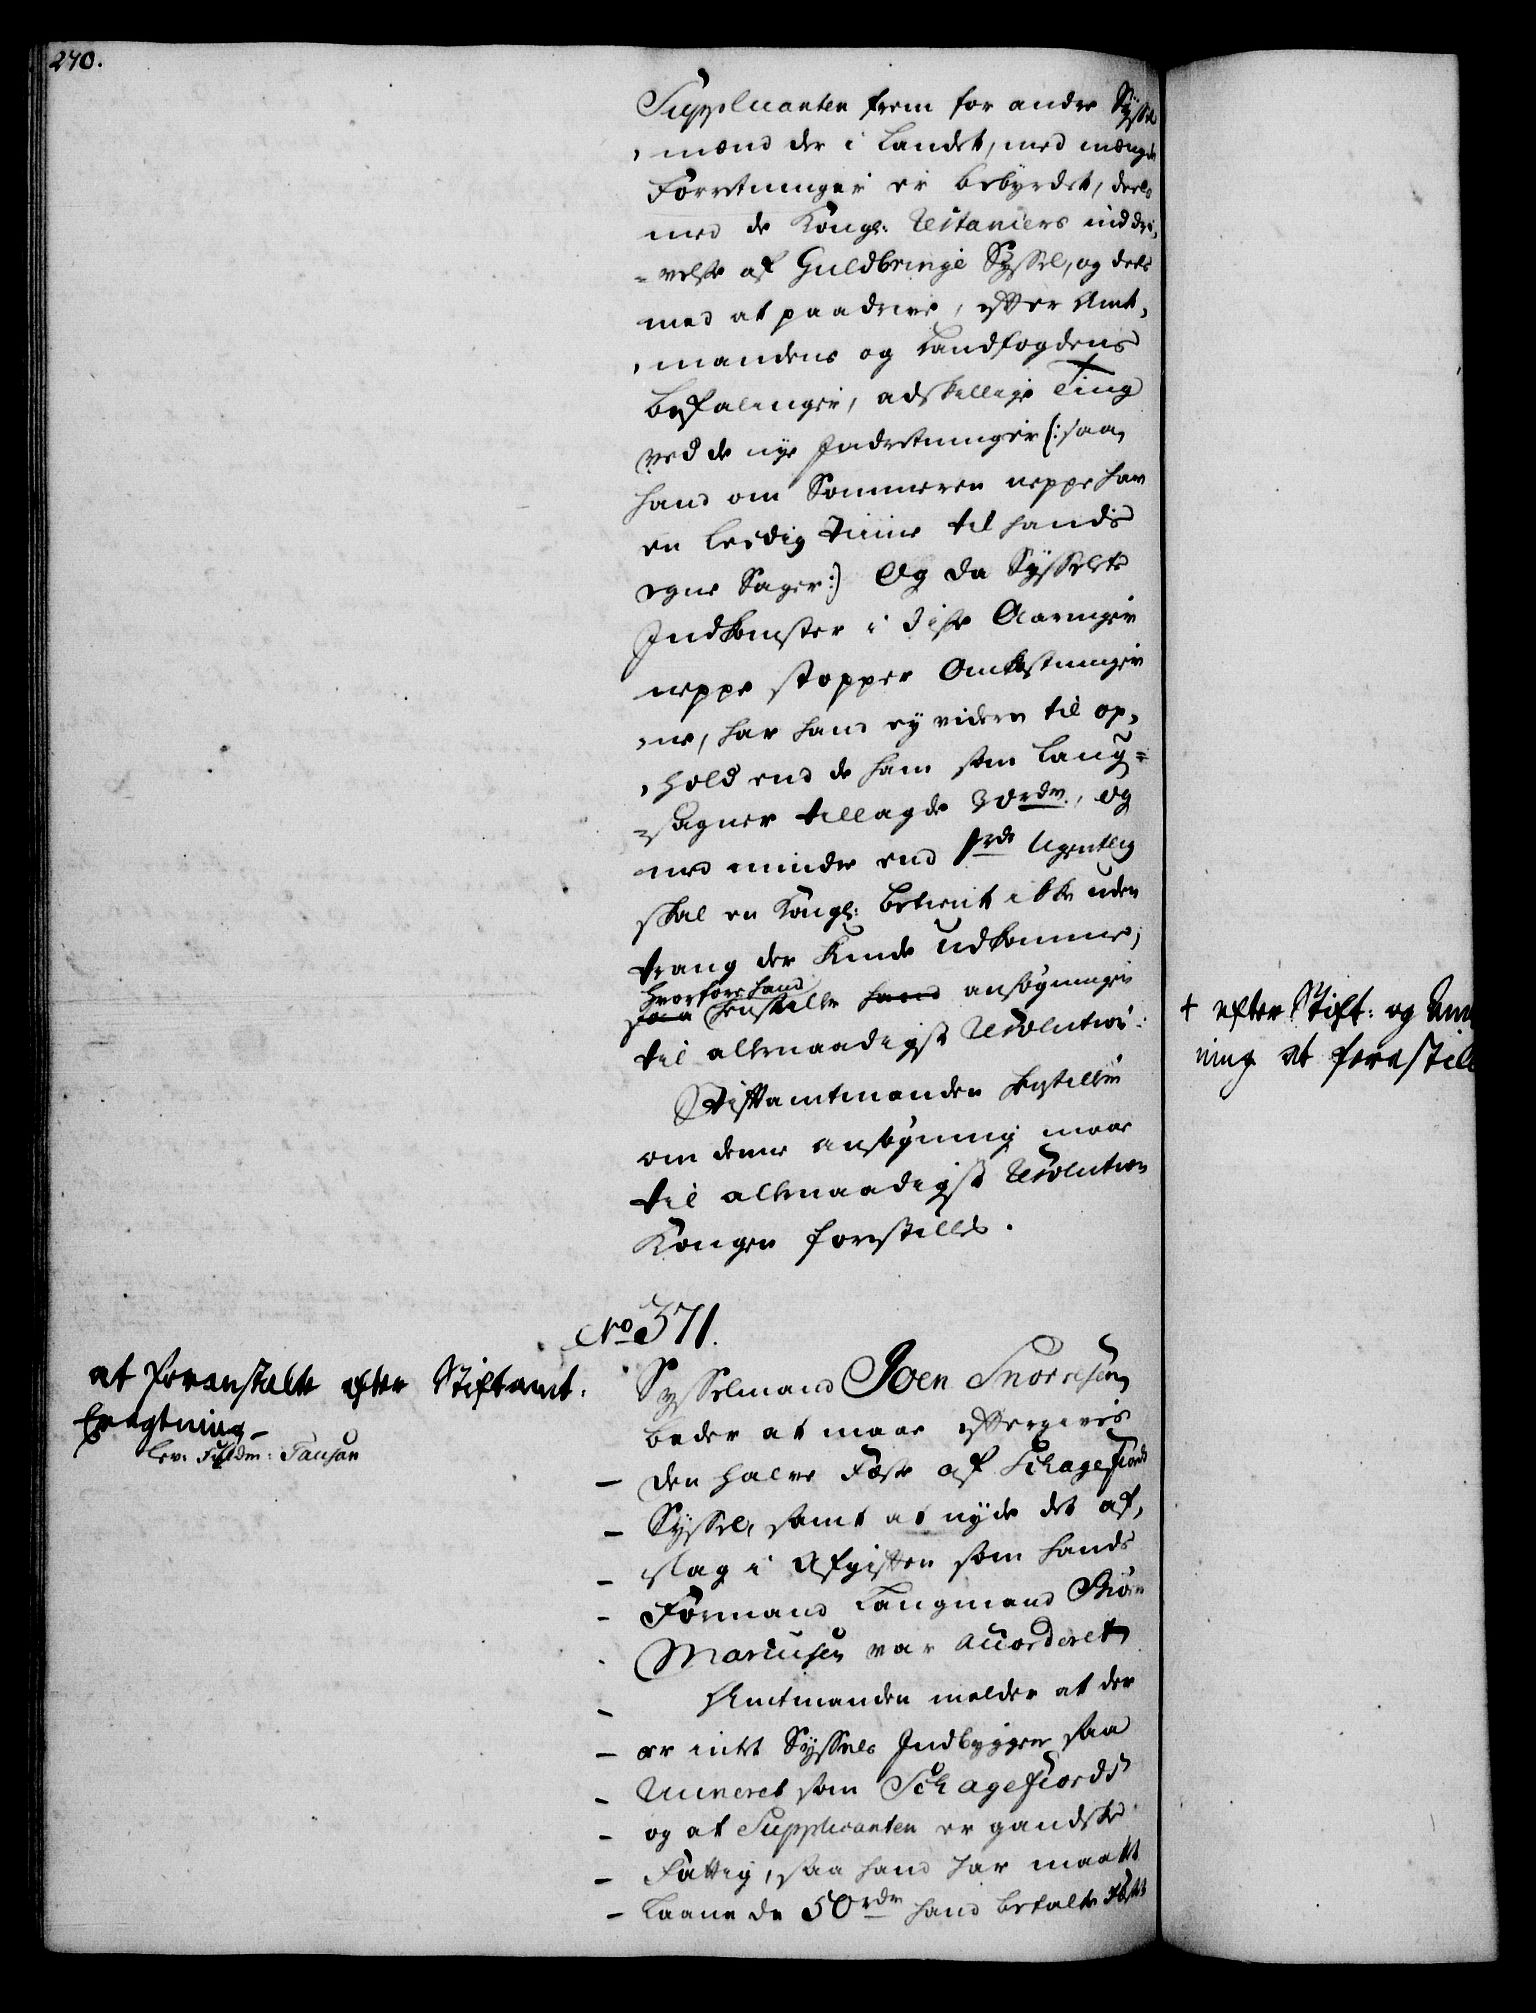 270.
Supplicanten frem for andre Syssel
mænd der i Landet, med mange
Forretninger er bebyrdet, deels
med de Kongl: Restanciers inddri,
=velse af Guldbringe Syssel, og deels
med at paadrive, efter Amt,
mandens og Landfogdens
befalinger, adskillige Ting
ved de nye Indretninger (:saa
hand om Sommeren neppe har
en leedig Time til hands
egne Sager:) Og da Sysselets
Indkomster i disse Aaringer
neppe stopper Omkostninger
ne, har hand ey videre til op,
hold end de ham som Laug=
=sagner tillagde 30 rdr., og
med mindre end 1 rdr Ugentlig
skal en Kongl: betient ikke uden
trang der kunde udkomme;
hvorfore hand
saa henstiller hand ansøgningen
til allernaadigst Resolution:
Stiftamtmanden
om denne ansøgning maae
til allernaadigst Resolution
Kongen forestilles.
+ efter Stift: og Am
ning at forestill
No 371.
Sysselmand Joen Snorresen
beder at maae eftergives
den halve Fæste af Schagefiords
Syssel, samt at nyde det af,
slag i Afgiften som hands
Formand Laugmand Biørn
Marcusen var accorderet
Amtmanden melder at der
er intet Syssels Indbyggere saa
Ruineret som Schagefiords
og at Supplicanten er gandske
Fattig, saa hand har maatt
Laane de 50 rdr hand betalte
at foranstalte efter Stiftamt.
Eragtning
lev. Fuldm: Tausan